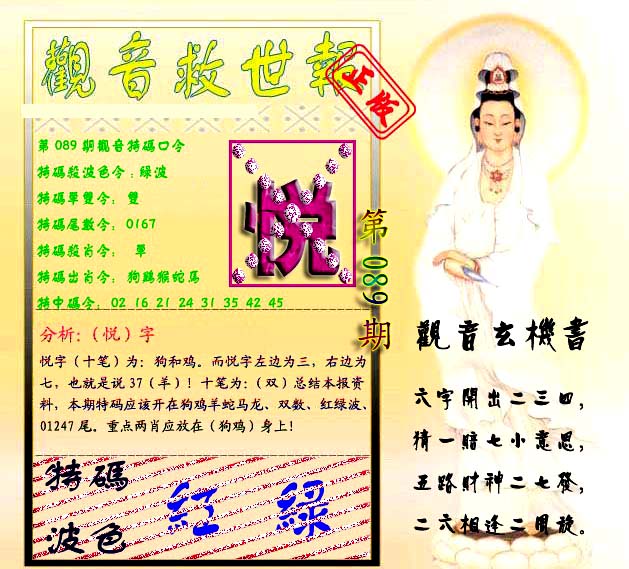 觀音救世報
正版
第 089 期觀音特碼口令
特碼殺波色令：綠波
特碼單雙令： 雙
特碼尾數令： 0167
特碼殺肖令： 單
特碼出肖令： 狗鷄猴蛇馬
特中碼令： 02 16 21 24 31 35 42 45
悦
第 089 期
分析:（悦）字
悦字（十笔）为：狗和鸡。而悦字左边为三，右边为
七，也就是说 37（羊）！十笔为：（双）总结本报资
料，本期特码应该开在狗鸡羊蛇马龙、双数、红绿波、
01247 尾。重点两肖应放在（狗鸡）身上！
特碼
波色
紅 綠
觀音玄機書
六字開出二三四，
猜一賠七小意思，
五路財神二七發，
二六相逢二周旋。